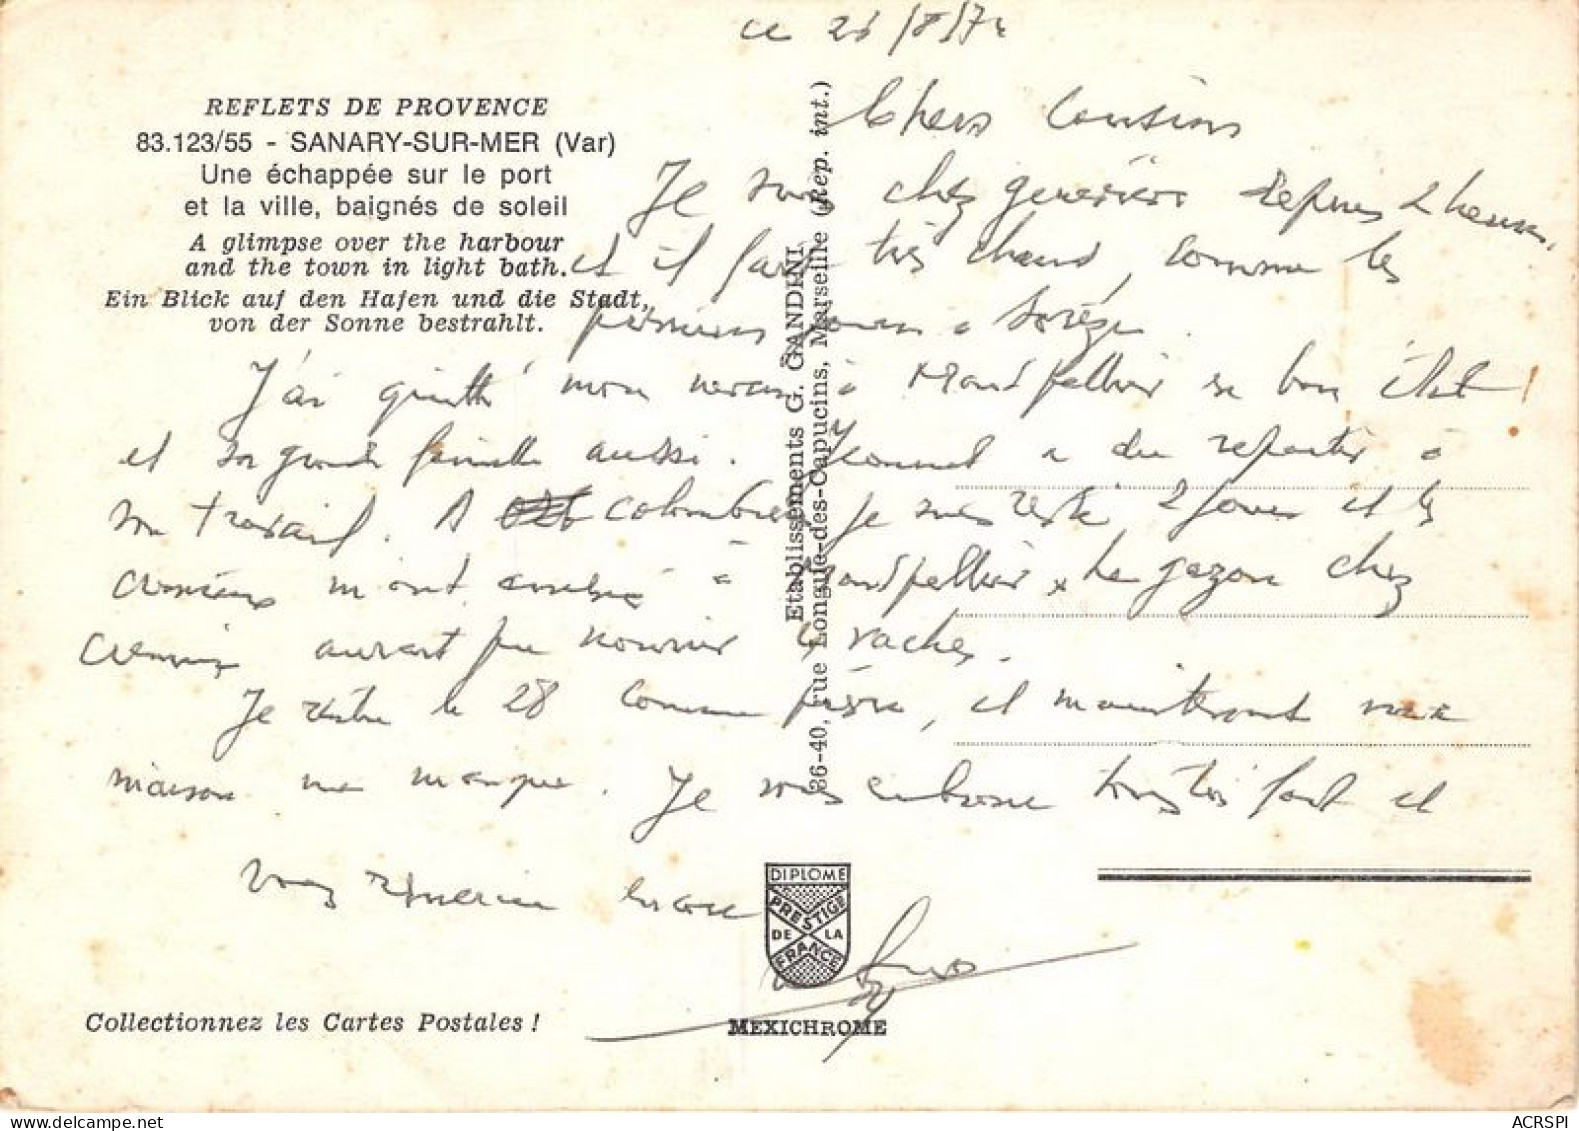 ce 26/8/74
REFLETS DE PROVENCE
83.123/55 - SANARY-SUR-MER (Var)
Une échappée sur le port
et la ville, baignés de soleil
A glimpse over the harbour
and the town in light bath.
Ein Blick auf den Hafen und die Stadt,
von der Sonne bestrahlt.
Chers Cousins
Je suis chez depuis 2 heures,
et il fait très chaud, comme les
premiers jours à Sorèze.
J'ai quitté mon neveu à Montpellier en bon état!
et sa grande famille aussi. Jeannot a du repartir à
son travail. A colombiers je suis resté 2 jours et les
m'ont emmené à Montpellier. Le gazon chez
aurait pu nourrir les vaches.
Je rentre le 28 comme prévu, et maintenant ma
maison me manque. Je vous embrasse tous très fort et
vous remercie encore
Etablissements G. GANDINI
36-40, rue Longue-des-Capucins, Marseille (Rep. int.)
DIPLOME
PRESTIGE
DE LA
FRANCE
MEXICHROME
Collectionnez les Cartes Postales !
ACRSPI